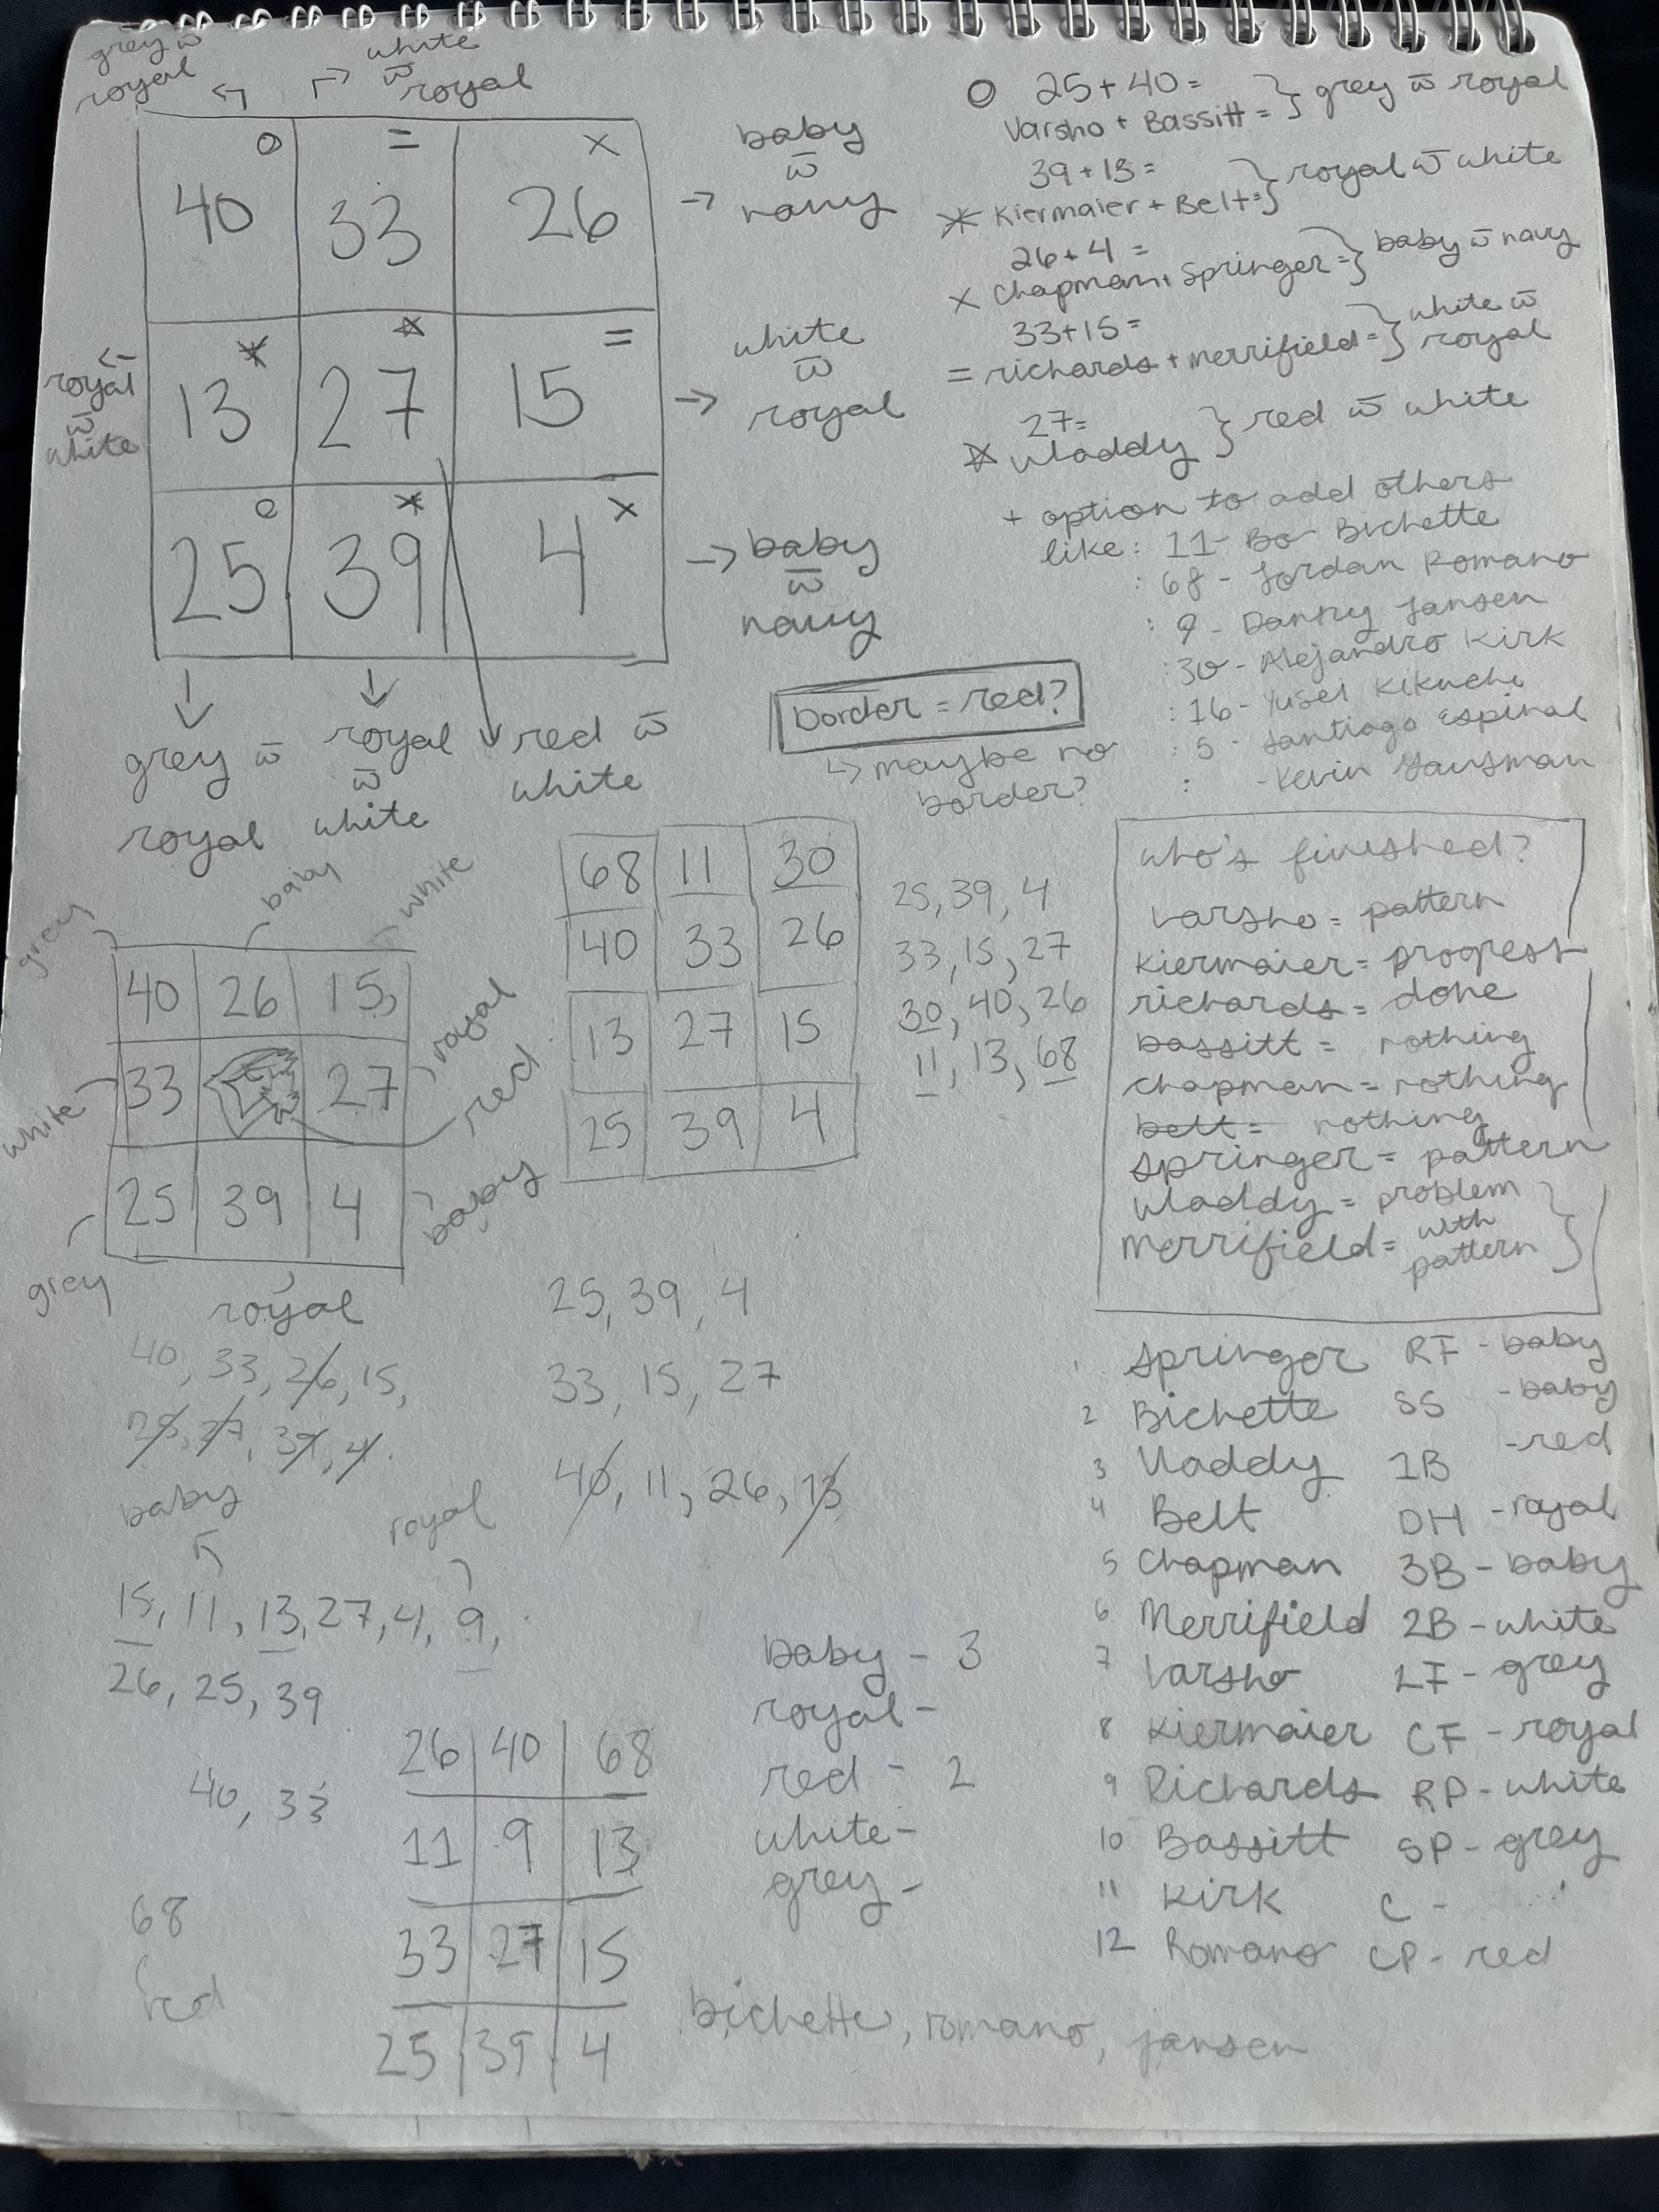 grey w̄
royal
white
w̄
royal
40 33 26
13 27 15
25 39 4
baby
w̄
navy
royal
w̄
white
white
w̄
royal
baby
w̄
navy
grey w̄
royal
royal
w̄
white
red w̄
white
25 + 40 =
Varsho + Bassitt = } grey w̄ royal
39 + 13 =
Kiermaier + Belt = } royal w̄ white
26 + 4 =
Chapman + Springer = } baby w̄ navy
33 + 15 =
= richards + merrifield = } white w̄ royal
27 =
vladdy } red w̄ white
+ option to add others
like: 11 - Bo Bichette
: 68 - Jordan Romano
: 9 - Danny Jansen
: 30 - Alejandro Kirk
: 16 - Yusei Kikuchi
: 5 - Santiago Espinal
: - Kevin Gausman
border = red?
↳ maybe no
border?
grey
baby
white
40 26 15,
33 27
25 39 4
white
royal
red
baby
grey
royal
68 11 30
40 33 26
13 27 15
25 39 4
25, 39, 4
33, 15, 27
30, 40, 26
11, 13, 68
who's finished?
varsho = pattern
kiermaier = progress
richards = done
bassitt = nothing
chapman = nothing
belt = nothing
springer = pattern
vladdy = problem
merrifield = with
pattern
40, 33, 26, 15,
25, 27, 39, 4.
25, 39, 4
33, 15, 27
40, 11, 26, 13
baby
royal
15, 11, 13, 27, 4, 9,
26, 25, 39
40, 33
68
red
26 40 68
11 9 13
33 27 15
25 39 4
baby - 3
royal -
red - 2
white -
grey -
1 Springer RF - baby
2 Bichette SS - baby
3 Vladdy 1B - red
4 Belt DH - royal
5 Chapman 3B - baby
6 Merrifield 2B - white
7 Varsho LF - grey
8 Kiermaier CF - royal
9 Richards RP - white
10 Bassitt SP - grey
11 Kirk C -
12 Romano CP - red
bichette, romano, jansen